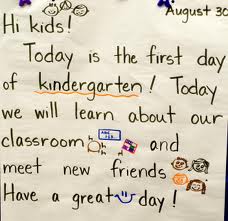 August 30
Hi kids!
Today is the first day
of kindergarten! Today
we will learn about our
classroom and
meet new friends
Have a great day!